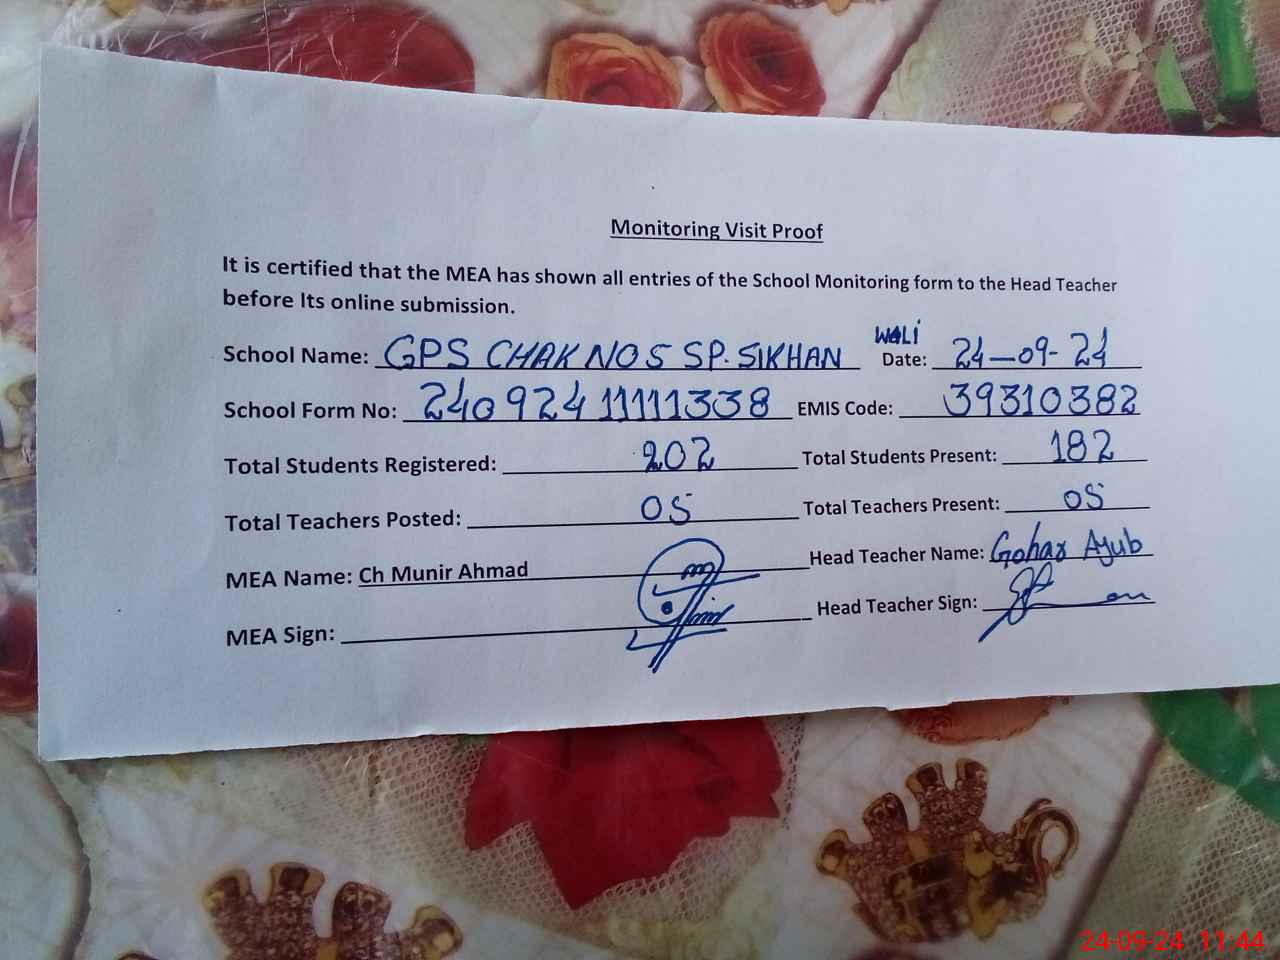 Monitoring Visit Proof
It is certified that the MEA has shown all entries of the School Monitoring form to the Head Teacher
before Its online submission.
School Name: GPS CHAK NO 5 SP. SIKHAN WALI Date: 24-09-24
School Form No: 24092411111338 EMIS Code: 39310382
Total Students Registered: 202 Total Students Present: 182
Total Teachers Posted: 05 Total Teachers Present: 05
MEA Name: Ch Munir Ahmad Head Teacher Name: Gohar Ayub
MEA Sign: Head Teacher Sign:
24-09-24 11:44